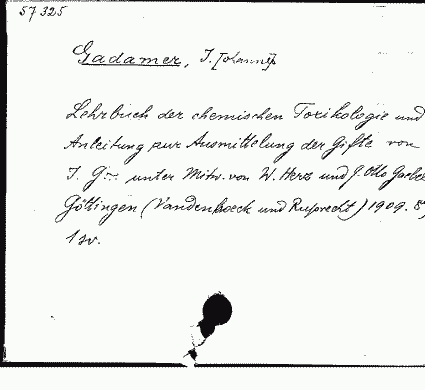 57325
Gadamer, J. [Johannes]
Lehrbuch der chemischen Toxikologie und
Anleitung zur Ausmittelung der Gifte von
J. G— unter Mitw. von W. Herz und G. Otto Gaebe
Göttingen (Vandenhoeck und Ruprecht) 1909. 8°,
1 sv.